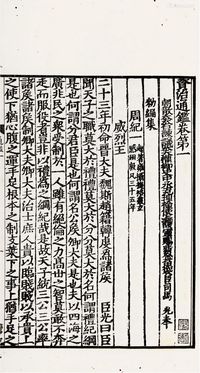 資治通鑑卷第一
朝散大夫右諫議大夫權御史中丞充理檢使上護軍賜紫金魚袋臣司馬 光奉
勑編集
周紀一
威烈王
二十三年初命晉大夫魏斯趙籍韓虔為諸侯 臣光曰臣
聞天子之職莫大於禮禮莫大於分分莫大於名何謂禮紀綱
是也何謂分君臣是也何謂名公侯卿大夫是也夫以四海之
廣兆民之衆受制於一人雖有絕倫之力高世之智莫不奔
走而服役者豈非以禮為之紀綱哉是故天子統三公三公率
諸侯諸侯制卿大夫卿大夫治士庶人貴以臨賤賤以承貴上
之使下猶心腹之運手足根本之制支葉下之事上猶手足之